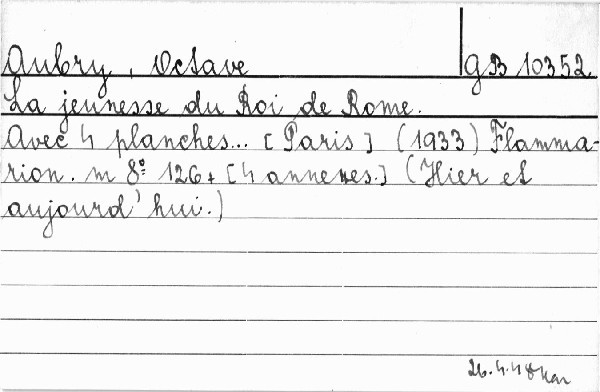 Aubry, Octave gB 10352.
La jeunesse du Roi de Rome.
Avec 4 planches... [Paris] (1933) Flamma-
rion. m 8º 126+[4 annexes.] (Hier et
aujourd'hui.)
26.4.48